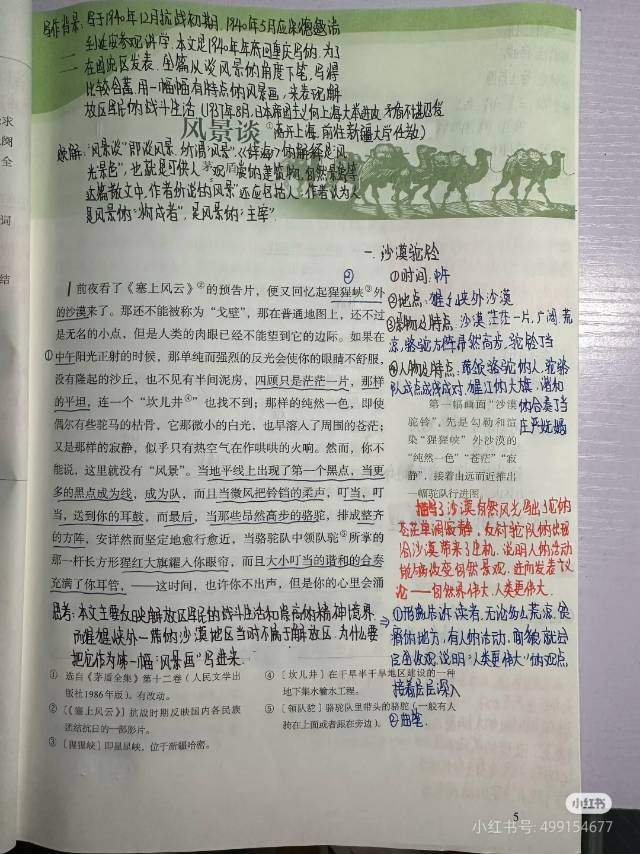 写作背景:写于1940年12月抗战初期,1940年5月应朱德邀请
到延安参观讲学,本文是1940年年底回重庆写的,为了
在国统区发表,全篇从谈风景的角度下笔,写得
比较含蓄,用一幅幅有特点的风景画,来表现解
放区军民的战斗生活(1937年8月,日本帝国主义向上海大举进攻,矛盾不得已发
离开上海,前往新疆大学任教)
风景谈①
茅盾
题解:“风景谈”即谈风景,所谓“风景”,《辞海》的解释是“风
光景色”,也就是可供人观赏的建筑物,自然景致等
达篇散文中,作者所说的“风景”还应包括人,作者认为人
是风景的“构成者”,是风景的“主宰”
一、沙漠驼铃
①时间:中午
②地点:猩猩峡外沙漠
③景物及特点:沙漠茫茫一片,广阔,荒
凉,骆驼方阵昂然高步,驼铃丁当
④人物及特点:带领骆驼的人,驼骆
队或点或线或队,猩红的大旗,谐和
的合奏丁当
庄严妩媚
前夜看了《塞上风云》②的预告片,便又回忆起猩猩峡③外
的沙漠来了。那还不能被称为“戈壁”,那在普通地图上,还不过
是无名的小点,但是人类的肉眼已经不能望到它的边际。如果在
中午阳光正射的时候,那单纯而强烈的反光会使你的眼睛不舒服;
没有隆起的沙丘,也不见有半间泥房,四顾只是茫茫一片,那样
的平坦,连一个“坎儿井④”也找不到;那样的纯然一色,即使
偶尔有些驼马的枯骨,它那微小的白光,也早溶入了周围的苍茫;
又是那样的寂静,似乎只有热空气在作哄哄的火响。然而,你不
能说,这里就没有“风景”。当地平线上出现了第一个黑点,当更
多的黑点成为线,成为队,而且当微风把铃铛的柔声,叮当,叮
当,送到你的耳鼓,而最后,当那些昂然高步的骆驼,排成整齐
的方阵,安详然而坚定地愈行愈近,当骆驼队中领队驼⑤所掌的
那一杆长方形猩红大旗耀入你眼帘,而且大小叮当的谐和的合奏
充满了你耳管,——这时间,也许你不出声,但是你的心里会涌
第一幅画面“沙漠
驼铃”,先是勾勒和渲
染“猩猩峡”外沙漠的
“纯然一色”“苍茫”“寂
静”,接着由远而近推出
一幅驼队行进图。
描写了沙漠自然风光,写出了它的
苍茫单调寂静,反衬驼队的出现
给沙漠带来了生机,说明人的活动
能够改变自然景观,进而发表议
论——自然界伟大,人类更伟大.
思考:本文主要反映解放区军民的战斗生活和崇高的精神境界
而猩猩峡外一带的沙漠地区当时不属于解放区,为什么要
把它作为第一幅“风景画”写进来
⇒①形象告诉读者,无论多么荒凉,贫
瘠的地方,有人的活动,面貌就会
完全改观,说明“人类更伟大”的观点,
接着层层深入
②曲笔.
① 选自《茅盾全集》第十二卷(人民文学出
版社1986年版)。有改动。
② 〔《塞上风云》〕抗战时期反映国内各民族
团结抗日的一部影片。
③ 〔猩猩峡〕即星星峡,位于新疆哈密。
④ 〔坎儿井〕在干旱半干旱地区建设的一种
地下集水输水工程。
⑤ 〔领队驼〕骆驼队里带头的骆驼(一般有人
骑在上面或者跟在旁边)。
5
小红书
小红书号: 499154677